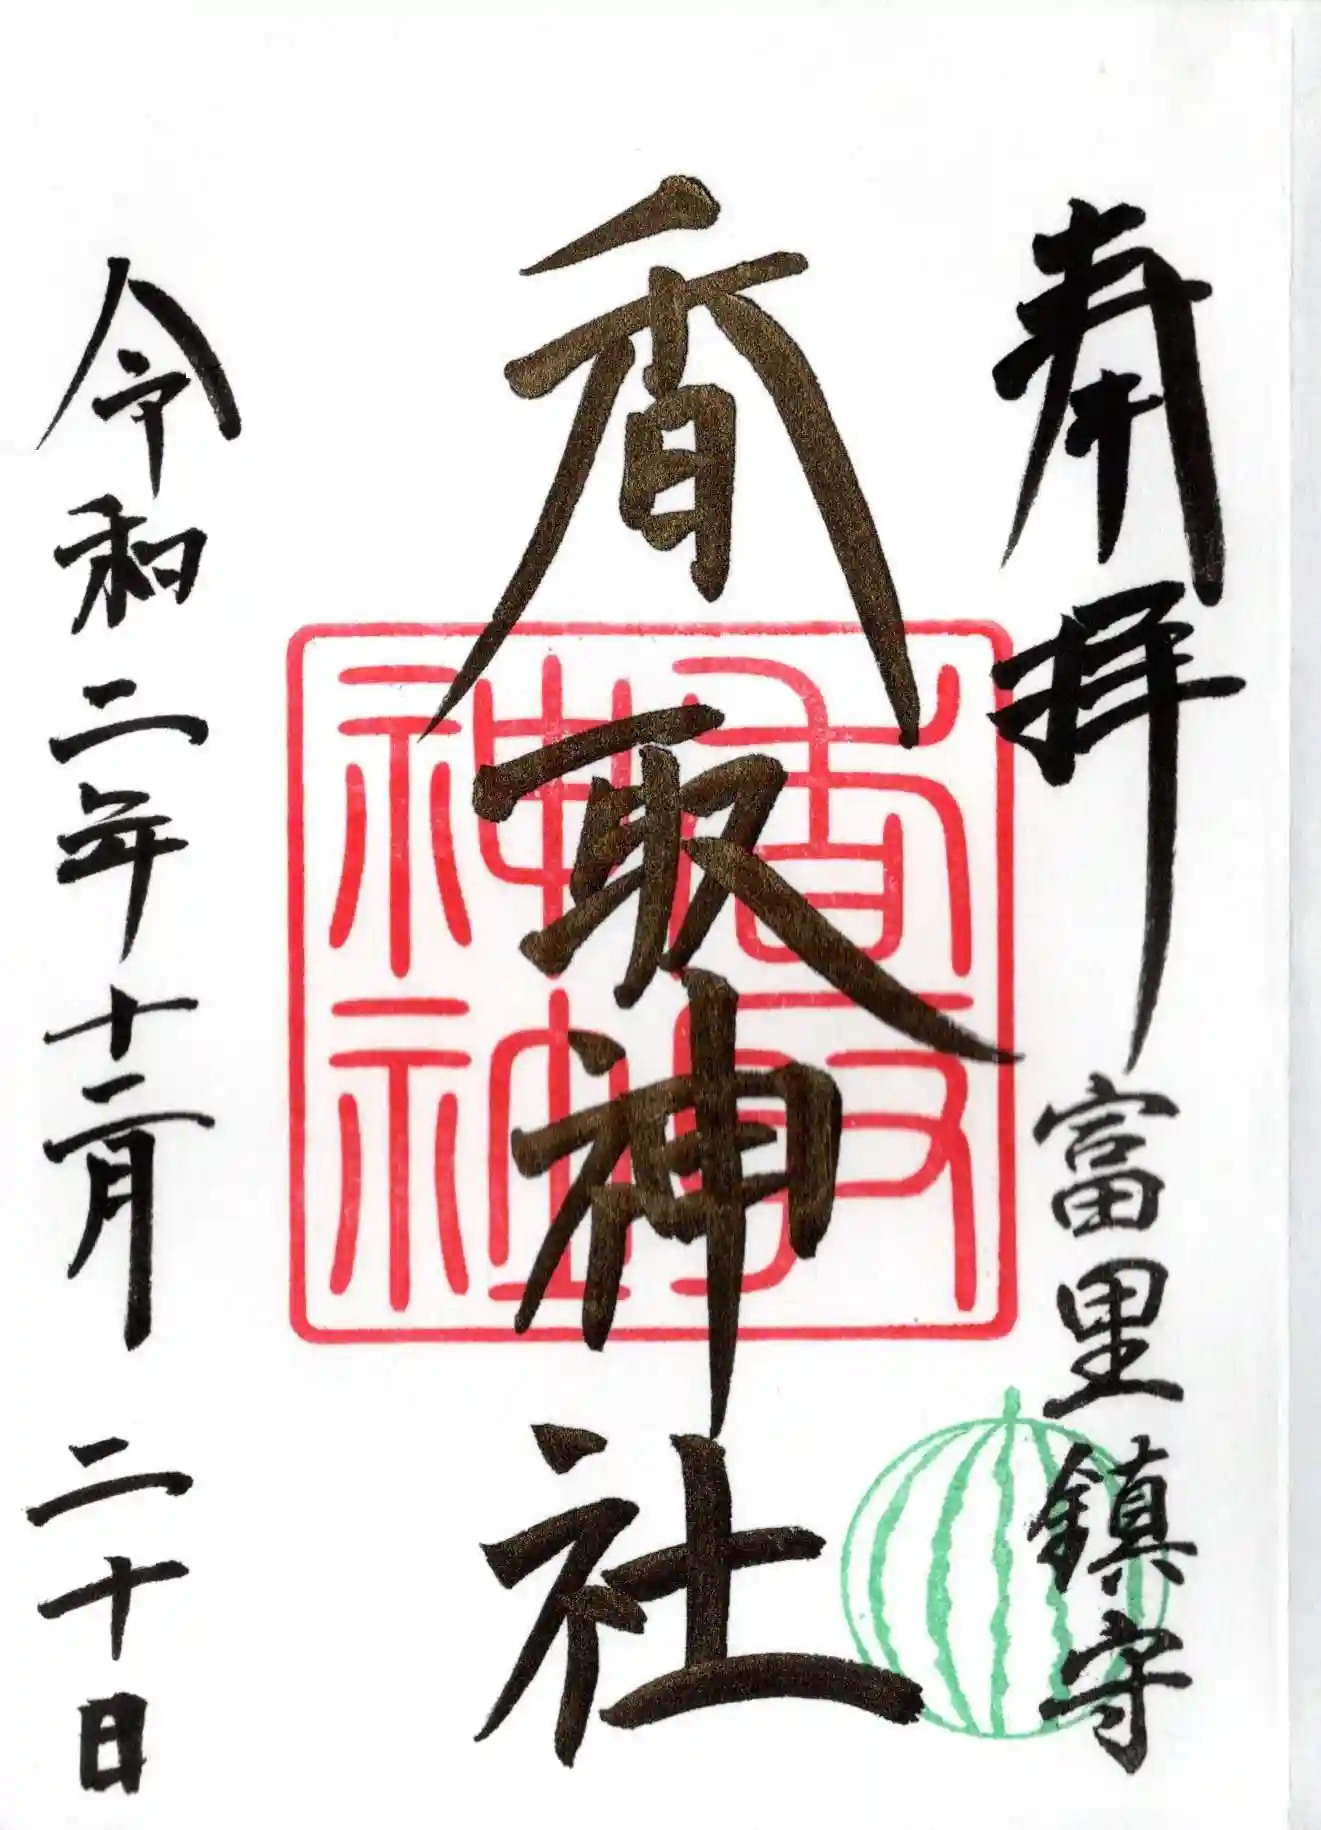 奉拝
富里鎮守
香取神社
香取神社
令和二年十二月二十日